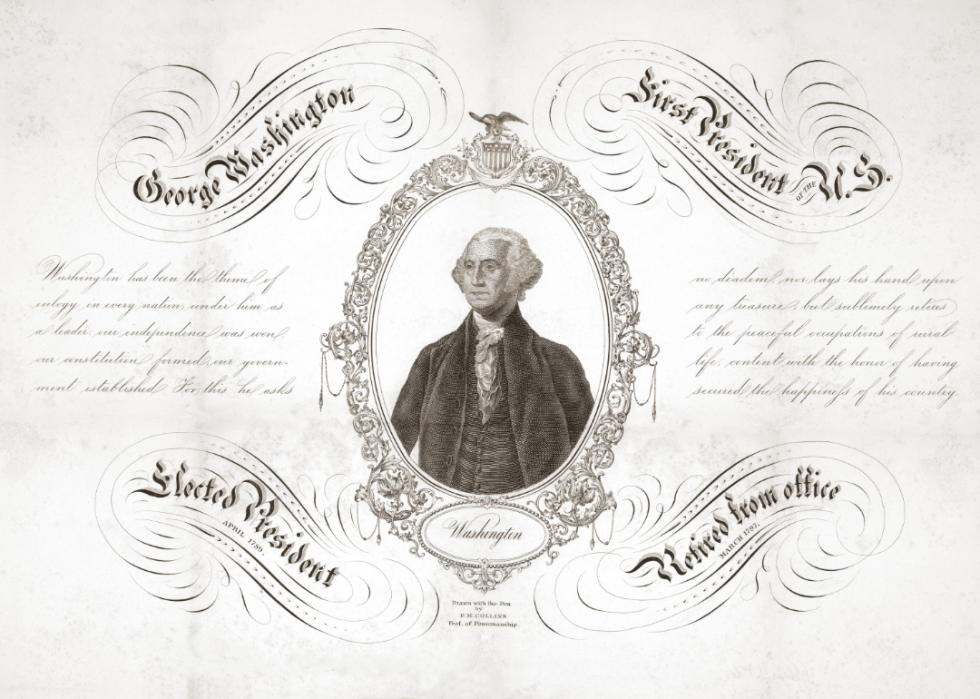 George Washington
First President OF THE U.S.
Washington has been the theme of
eulogy in every nation, under him as
a leader, our independence was won,
our constitution formed, our govern-
ment established. For this he asks
no diadem, nor lays his hand upon
any treasure, but sublimely retires
to the peaceful occupations of rural
life, content with the honor of having
secured the happiness of his country.
Elected President
APRIL 1789.
Retired from office
MARCH 1797.
Washington
Drawn with the Pen
by
P.M. COLLINS
Prof. of Penmanship.